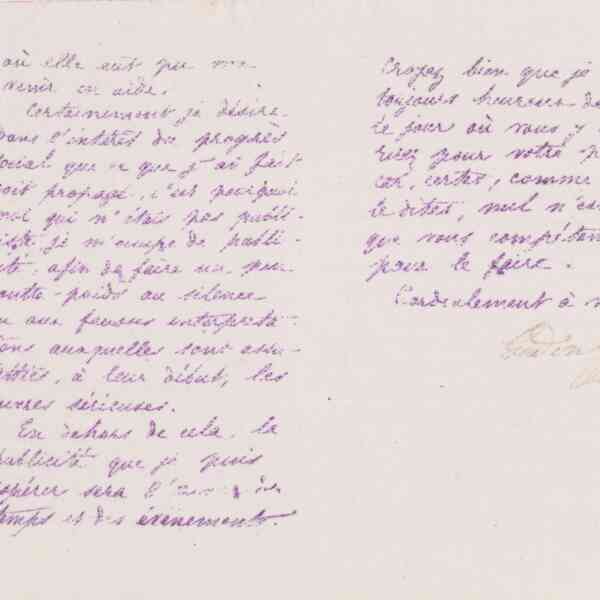 où elle eut pu me
venir en aide.
Certainement je désire
dans l'intérêt du progrès
social que ce que j'ai fait
soit propagé, c'est pourquoi
moi qui n'étais pas publi-
ciste je m'occupe de publi-
cité, afin de faire un peu
contre-poids au silence
ou aux fausses interpréta-
tions auxquelles sont assu-
jetties, à leur début, les
œuvres sérieuses.
En dehors de cela, la
publicité que je puis
espérer sera l' des
temps et des événements.
Croyez bien que je
toujours heureux de
le jour où vous y
riez pour votre
car, certes, comme
le dites, nul n'es
que vous compéten
pour le faire.
Cordialement à v
Godin